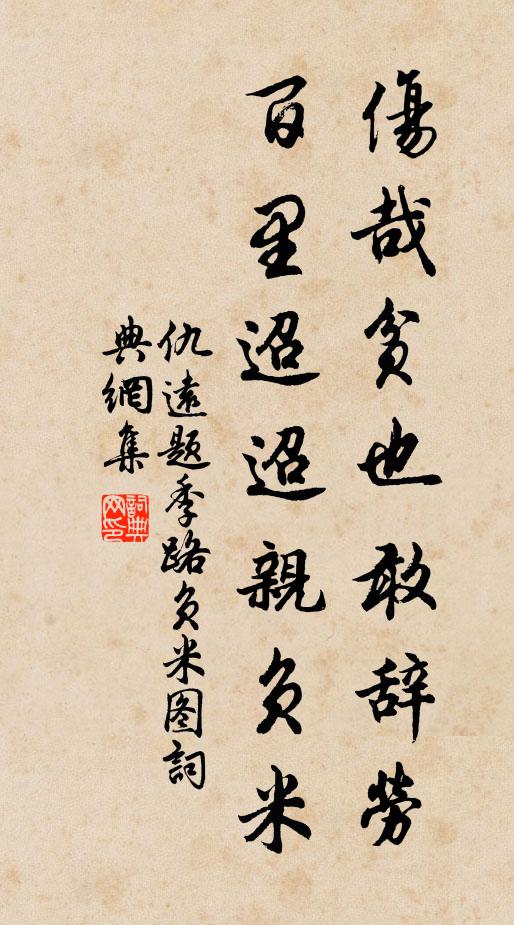 傷哉貧也敢辞勞
百里迢迢親負米
仇遠題季路負米图詞
典網集
詞典网印